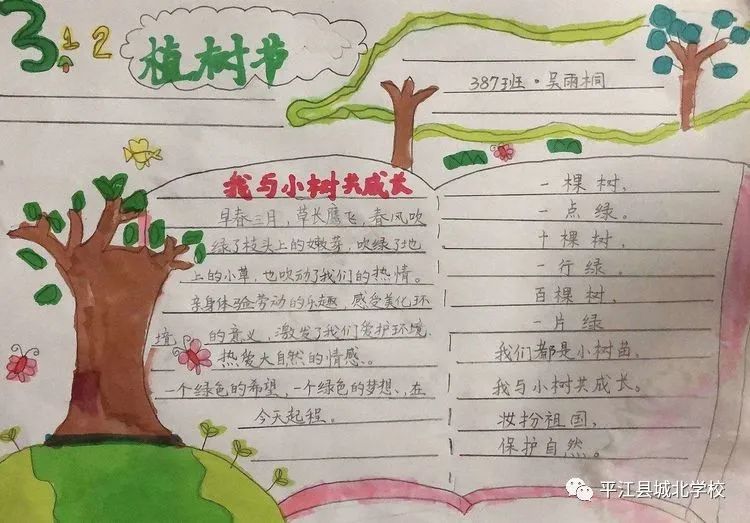 3.12
植树节
387班·吴雨桐
我与小树共成长
早春三月，草长鹰飞，春风吹
绿了枝头上的嫩芽，吹绿了地
上的小草，也吹动了我们的热情。
亲身体验劳动的乐趣，感受美化环
境 的意义，激发了我们爱护环境、
热爱大自然的情感。
一个绿色的希望，一个绿色的梦想、在
今天起程。
一棵树，
一点绿。
十棵树，
一行绿。
百棵树，
一片绿
我们都是小树苗，
我与小树共成长。
妆扮祖国，
保护自然。
平江县城北学校